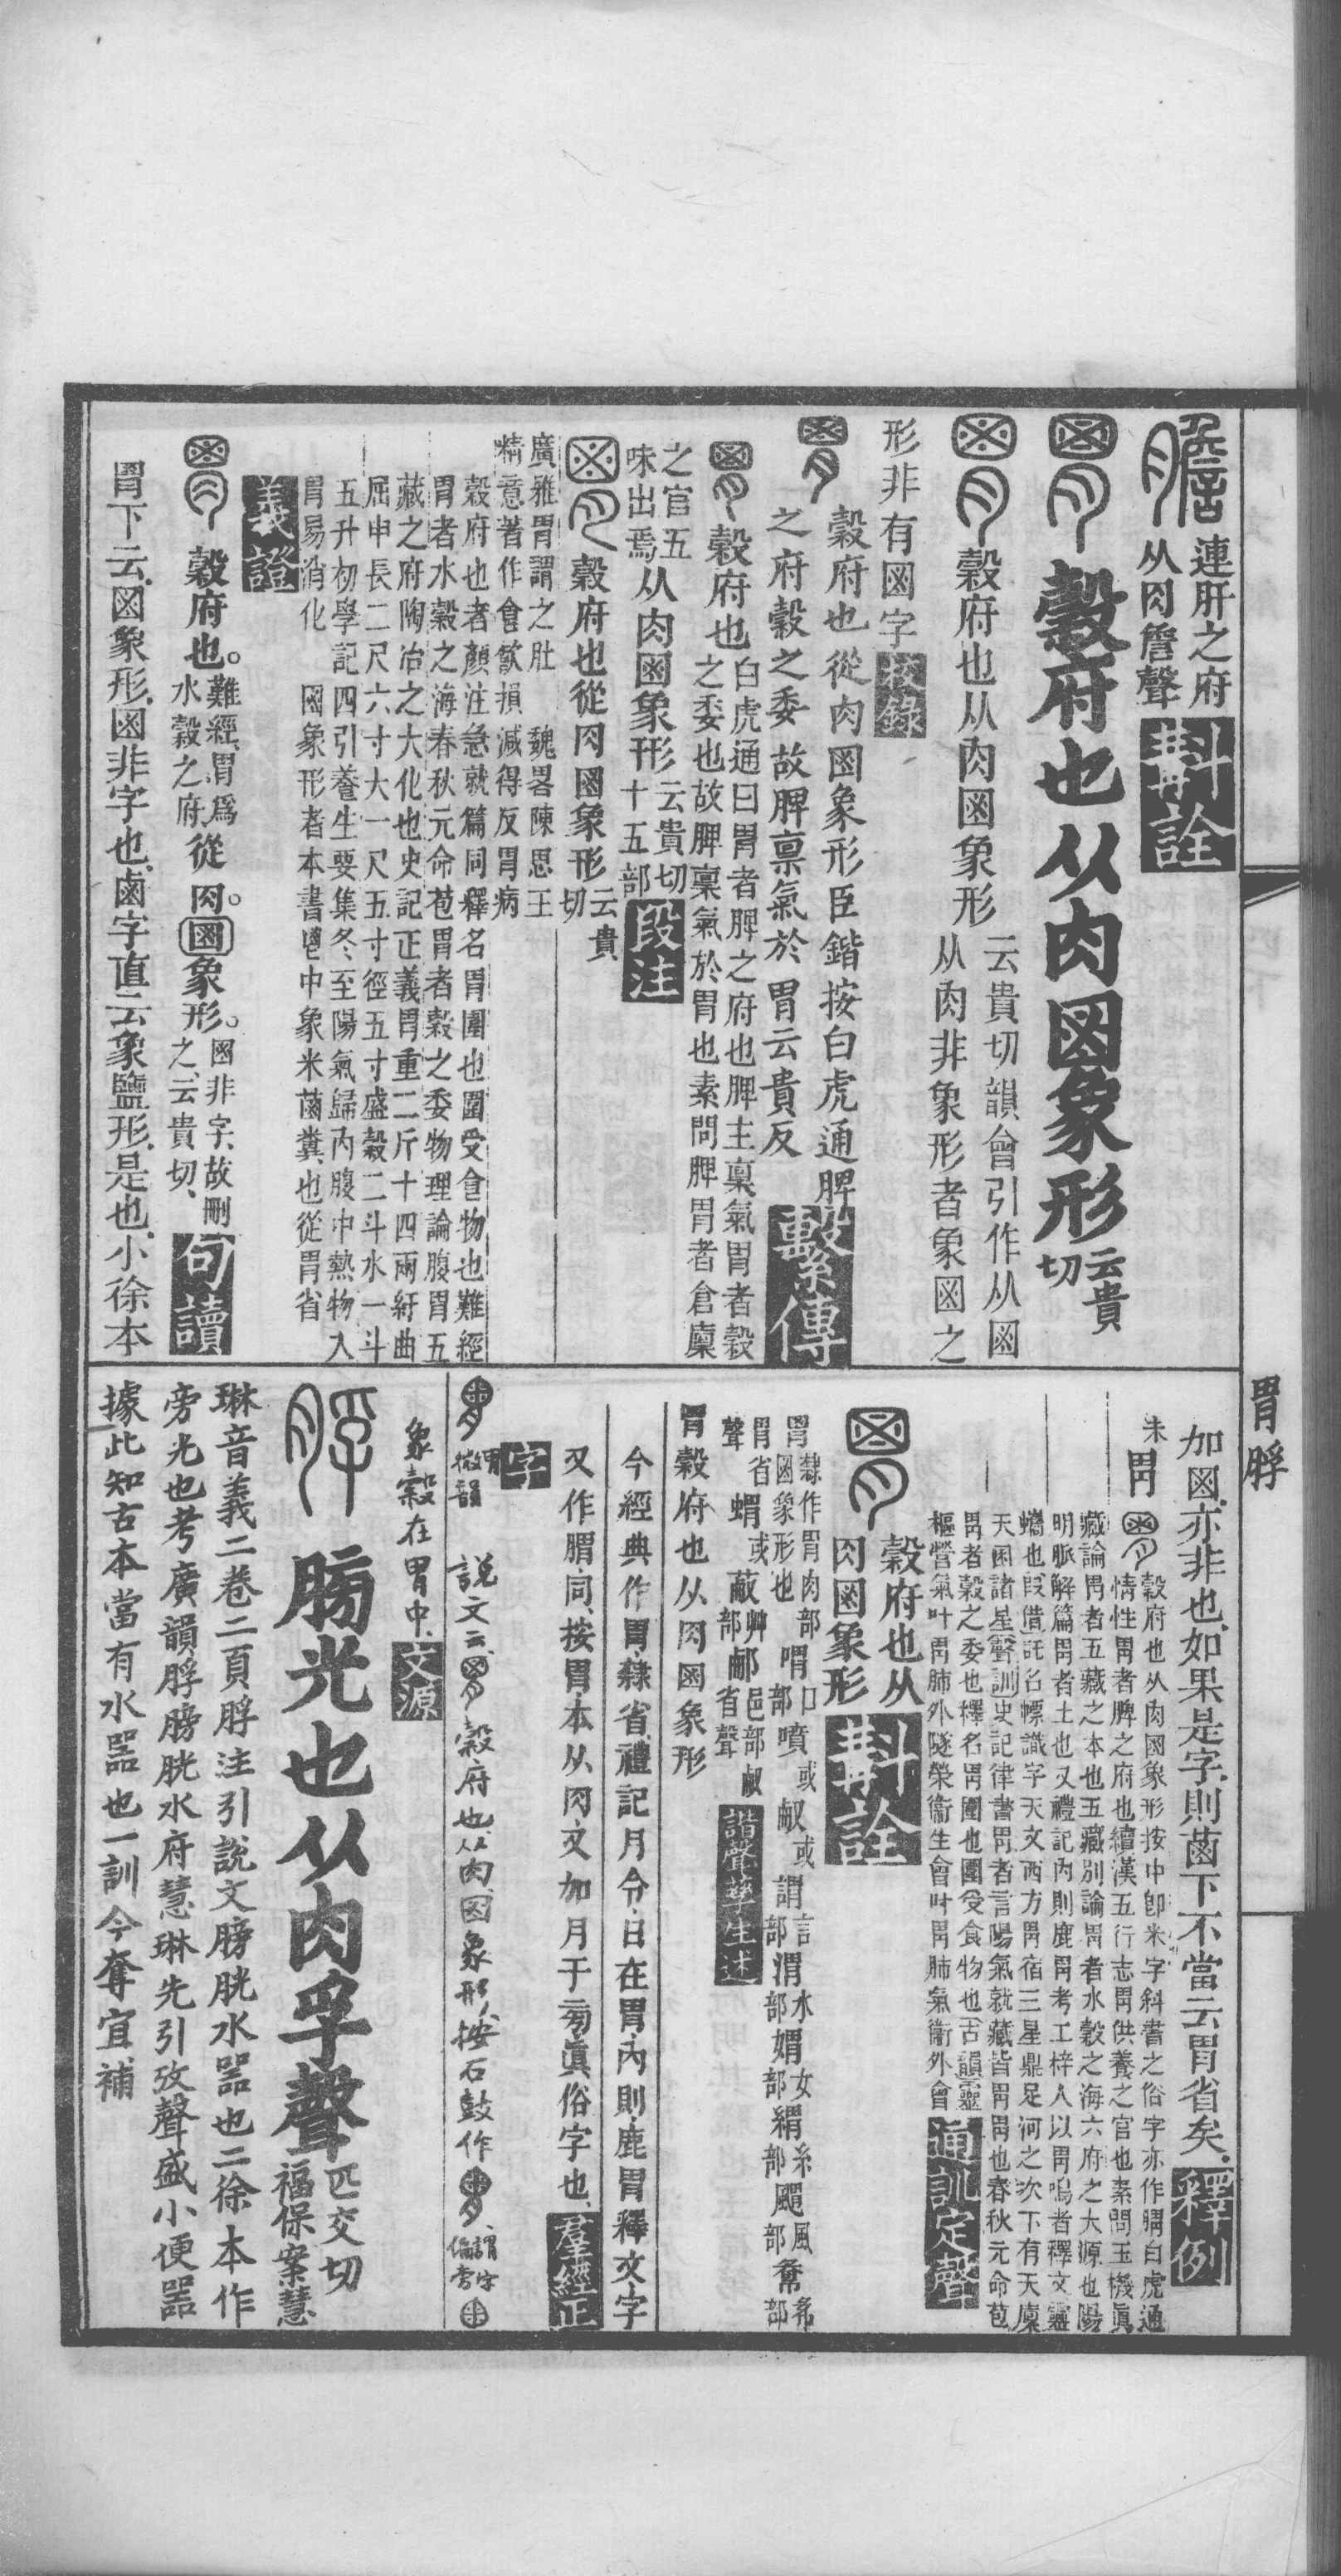 連肝之府
从肉詹聲
斠詮
穀府也从肉𡇒象形云貴切
穀府也从肉𡇒象形
云貴切韻會引作从𡇒
从肉非象形者象𡇒之
形非有𡇒字校錄
穀府也從肉𡇒象形臣鍇按白虎通脾
之府穀之委故脾稟氣於胃云貴反
繫傳
穀府也
白虎通曰胃者脾之府也脾主稟氣胃者穀
之委也故脾稟氣於胃也素問脾胃者倉廩
之官五
味出焉
从肉𡇒象形
云貴切
十五部
段注
穀府也從肉𡇒象形云貴切
廣雅胃謂之肚 魏畧陳思王
精意著作食飲損減得反胃病
穀府也者顏注急就篇同釋名胃圍也圍受食物也難經
胃者水穀之海春秋元命苞胃者穀之委物理論腹胃五
藏之府陶冶之大化也史記正義胃重二斤十四兩紆曲
屈申長二尺六寸大一尺五寸徑五寸盛穀二斗水一斗
五升初學記四引養生要集冬至陽氣歸內腹中熱物入
胃易消化 𡇒象形者本書鬯中象米𦳊糞也從胃省
義證
穀府也
難經胃爲
水穀之府
從肉𡇒象形
𡇒非字故刪
之云貴切
句讀
胃下云𡇒象形𡇒非字也鹵字直云象鹽形是也小徐本
胃脬
加𡇒亦非也如果是字則𦳊下不當云胃省矣釋例
未胃
穀府也从肉𡇒象形按中卽米字斜書之俗字亦作䐴白虎通
情性胃者脾之府也續漢五行志胃供養之官也素問玉機眞
藏論胃者五藏之本也五藏別論胃者水穀之海六府之大源也陽
明脈解篇胃者土也又禮記內則鹿胃考工梓人以胃鳴者釋文靈
蠵也叚借託名幖識字天文西方胃宿三星鼎足河之次下有天廩
天囷諸星聲訓史記律書胃者言陽氣就藏皆胃胃也春秋元命苞
胃者穀之委也釋名胃圍也圍受食物也古韻靈
樞營氣叶胃肺外隧榮衞生會叶胃肺氣衞外會
通訓定聲
穀府也从
肉𡇒象形
斠詮
胃隸作胃肉部
𡇒象形也
喟口部
噴或
㕟或
謂言部
渭水部
媦女部
緭糸部
䬑風部
胃省聲
蝟或
蔽艸部
邑部
省聲
諧聲孳生述
胃穀府也从肉𡇒象形
今經典作胃隸省禮記月令日在胃內則鹿胃釋文字
又作䐴同按胃本从肉文加月于旁眞俗字也
羣經正
字
胃
微韻
說文云穀府也从肉𡇒象形按石鼓作
謂字
偏旁
象穀在胃中文源
膀光也从肉孚聲
匹交切
福保案慧
琳音義二卷二頁脬注引說文膀胱水器也二徐本作
旁光也考廣韻脬膀胱水府慧琳先引攷聲盛小便器
據此知古本當有水器也一訓今奪宜補